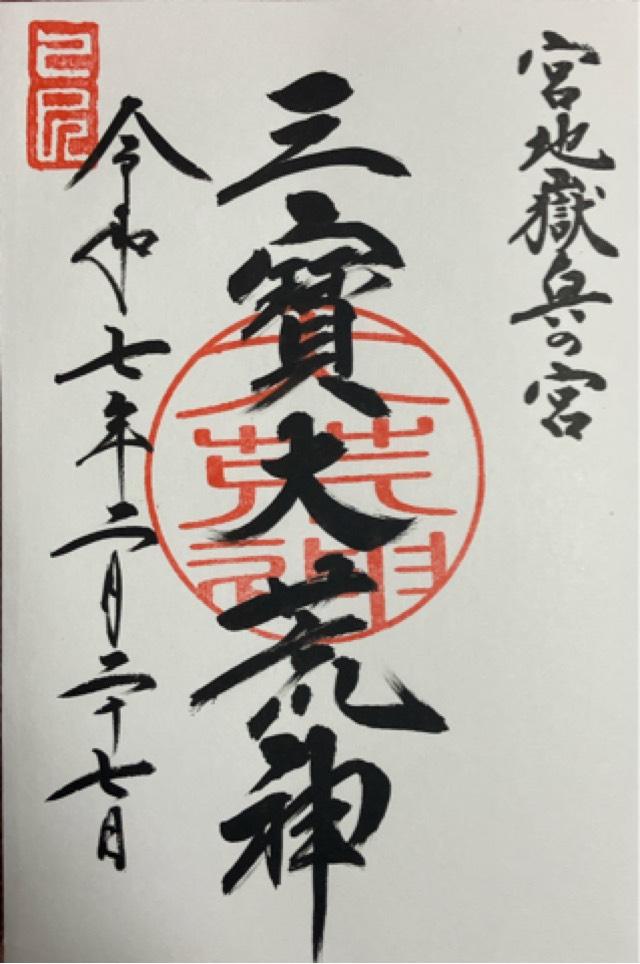 宮地獄兵の宮
三寳大荒神
令和七年二月二十七日
己巳